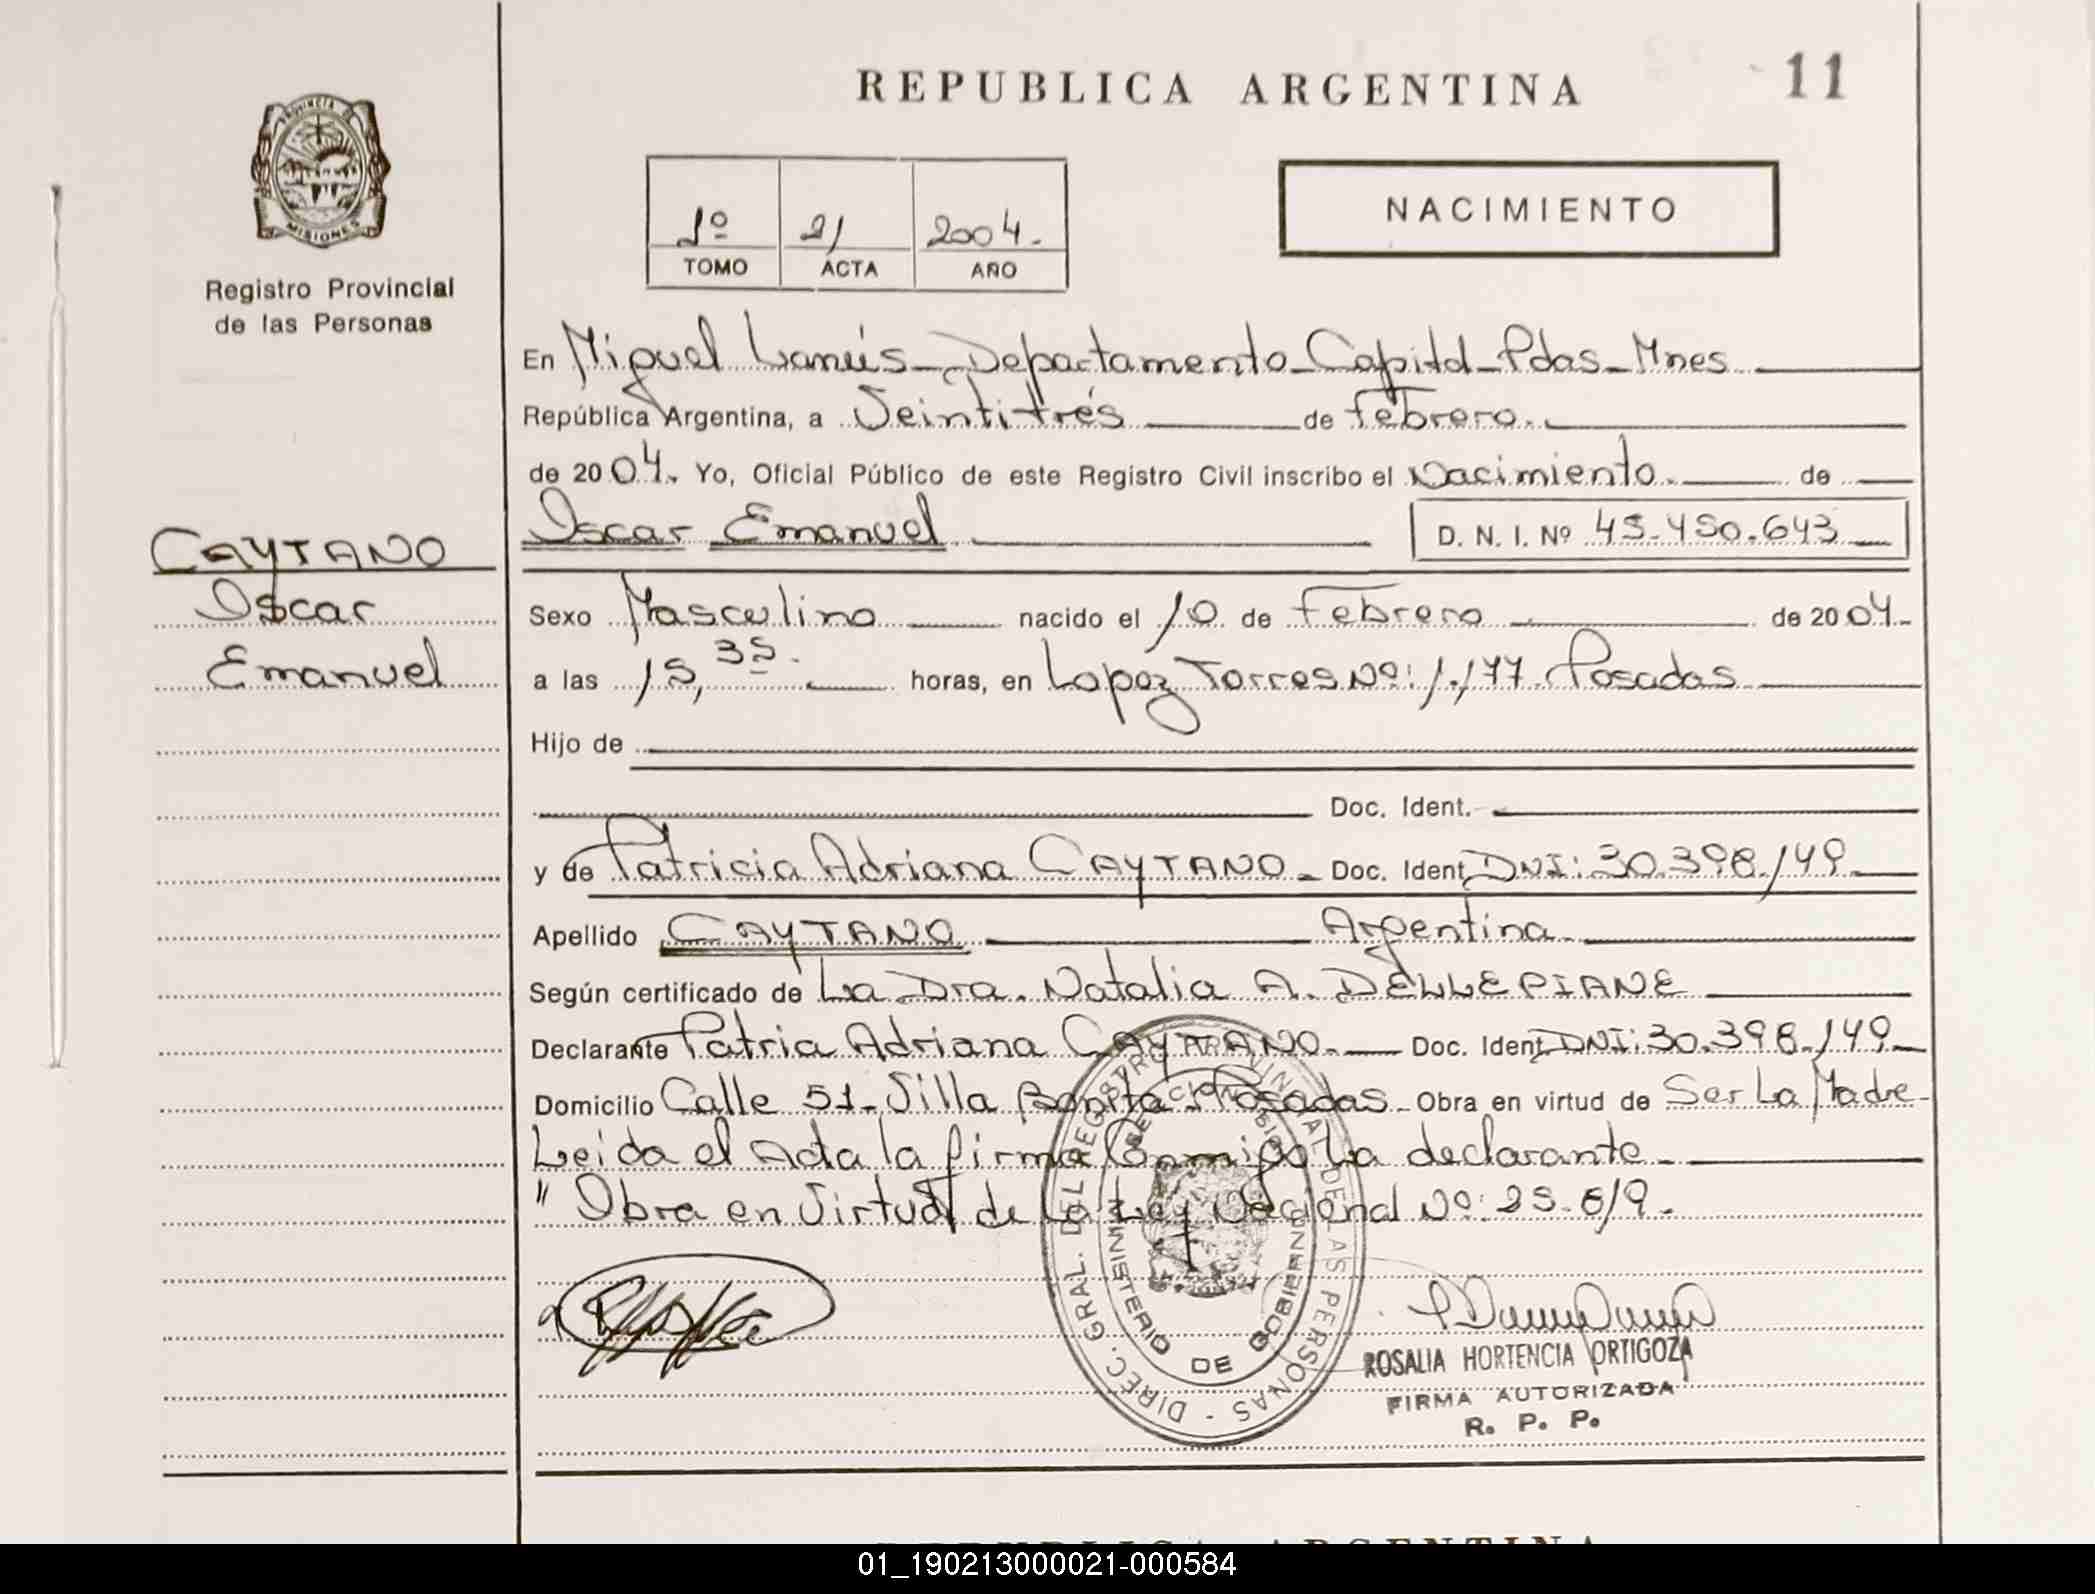 REPUBLICA ARGENTINA
11
PROVINCIA DE
MISIONES
Registro Provincial
de las Personas
1º 21 2004.
TOMO ACTA AÑO
NACIMIENTO
En Miguel Lanús - Departamento Capital - Pdas - Mnes
República Argentina, a Veintitrés de Febrero.
de 2004. Yo, Oficial Público de este Registro Civil inscribo el Nacimiento. de
Oscar Emanuel D. N. I. Nº 45.450.643
CAYTANO
Oscar
Emanuel
Sexo Masculino nacido el 10 de Febrero de 2004.
a las 15,35. horas, en Lopez Torres Nº: 1.177. Posadas
Hijo de
Doc. Ident.
y de Patricia Adriana CAYTANO - Doc. Ident. DNI: 30.398.149
Apellido CAYTANO Argentina.
Según certificado de La Dra. Natalia A. DELLEPIANE
Declarante Patria Adriana CAYTANO. Doc. Ident. DNI: 30.398.149
Domicilio Calle 51 - Villa Bonita - Posadas - Obra en virtud de Ser La Madre -
Leida el Acta la firma Conmigo La declarante
" Obra en Virtud de La Ley Nacional Nº: 25.819.
DIREC. GRAL. DEL REGISTRO PROVINCIAL DE LAS PERSONAS
MINISTERIO DE GOBIERNO
ROSALIA HORTENCIA ORTIGOZA
FIRMA AUTORIZADA
R. P. P.
REPUBLICA ARGENTINA
01_190213000021-000584